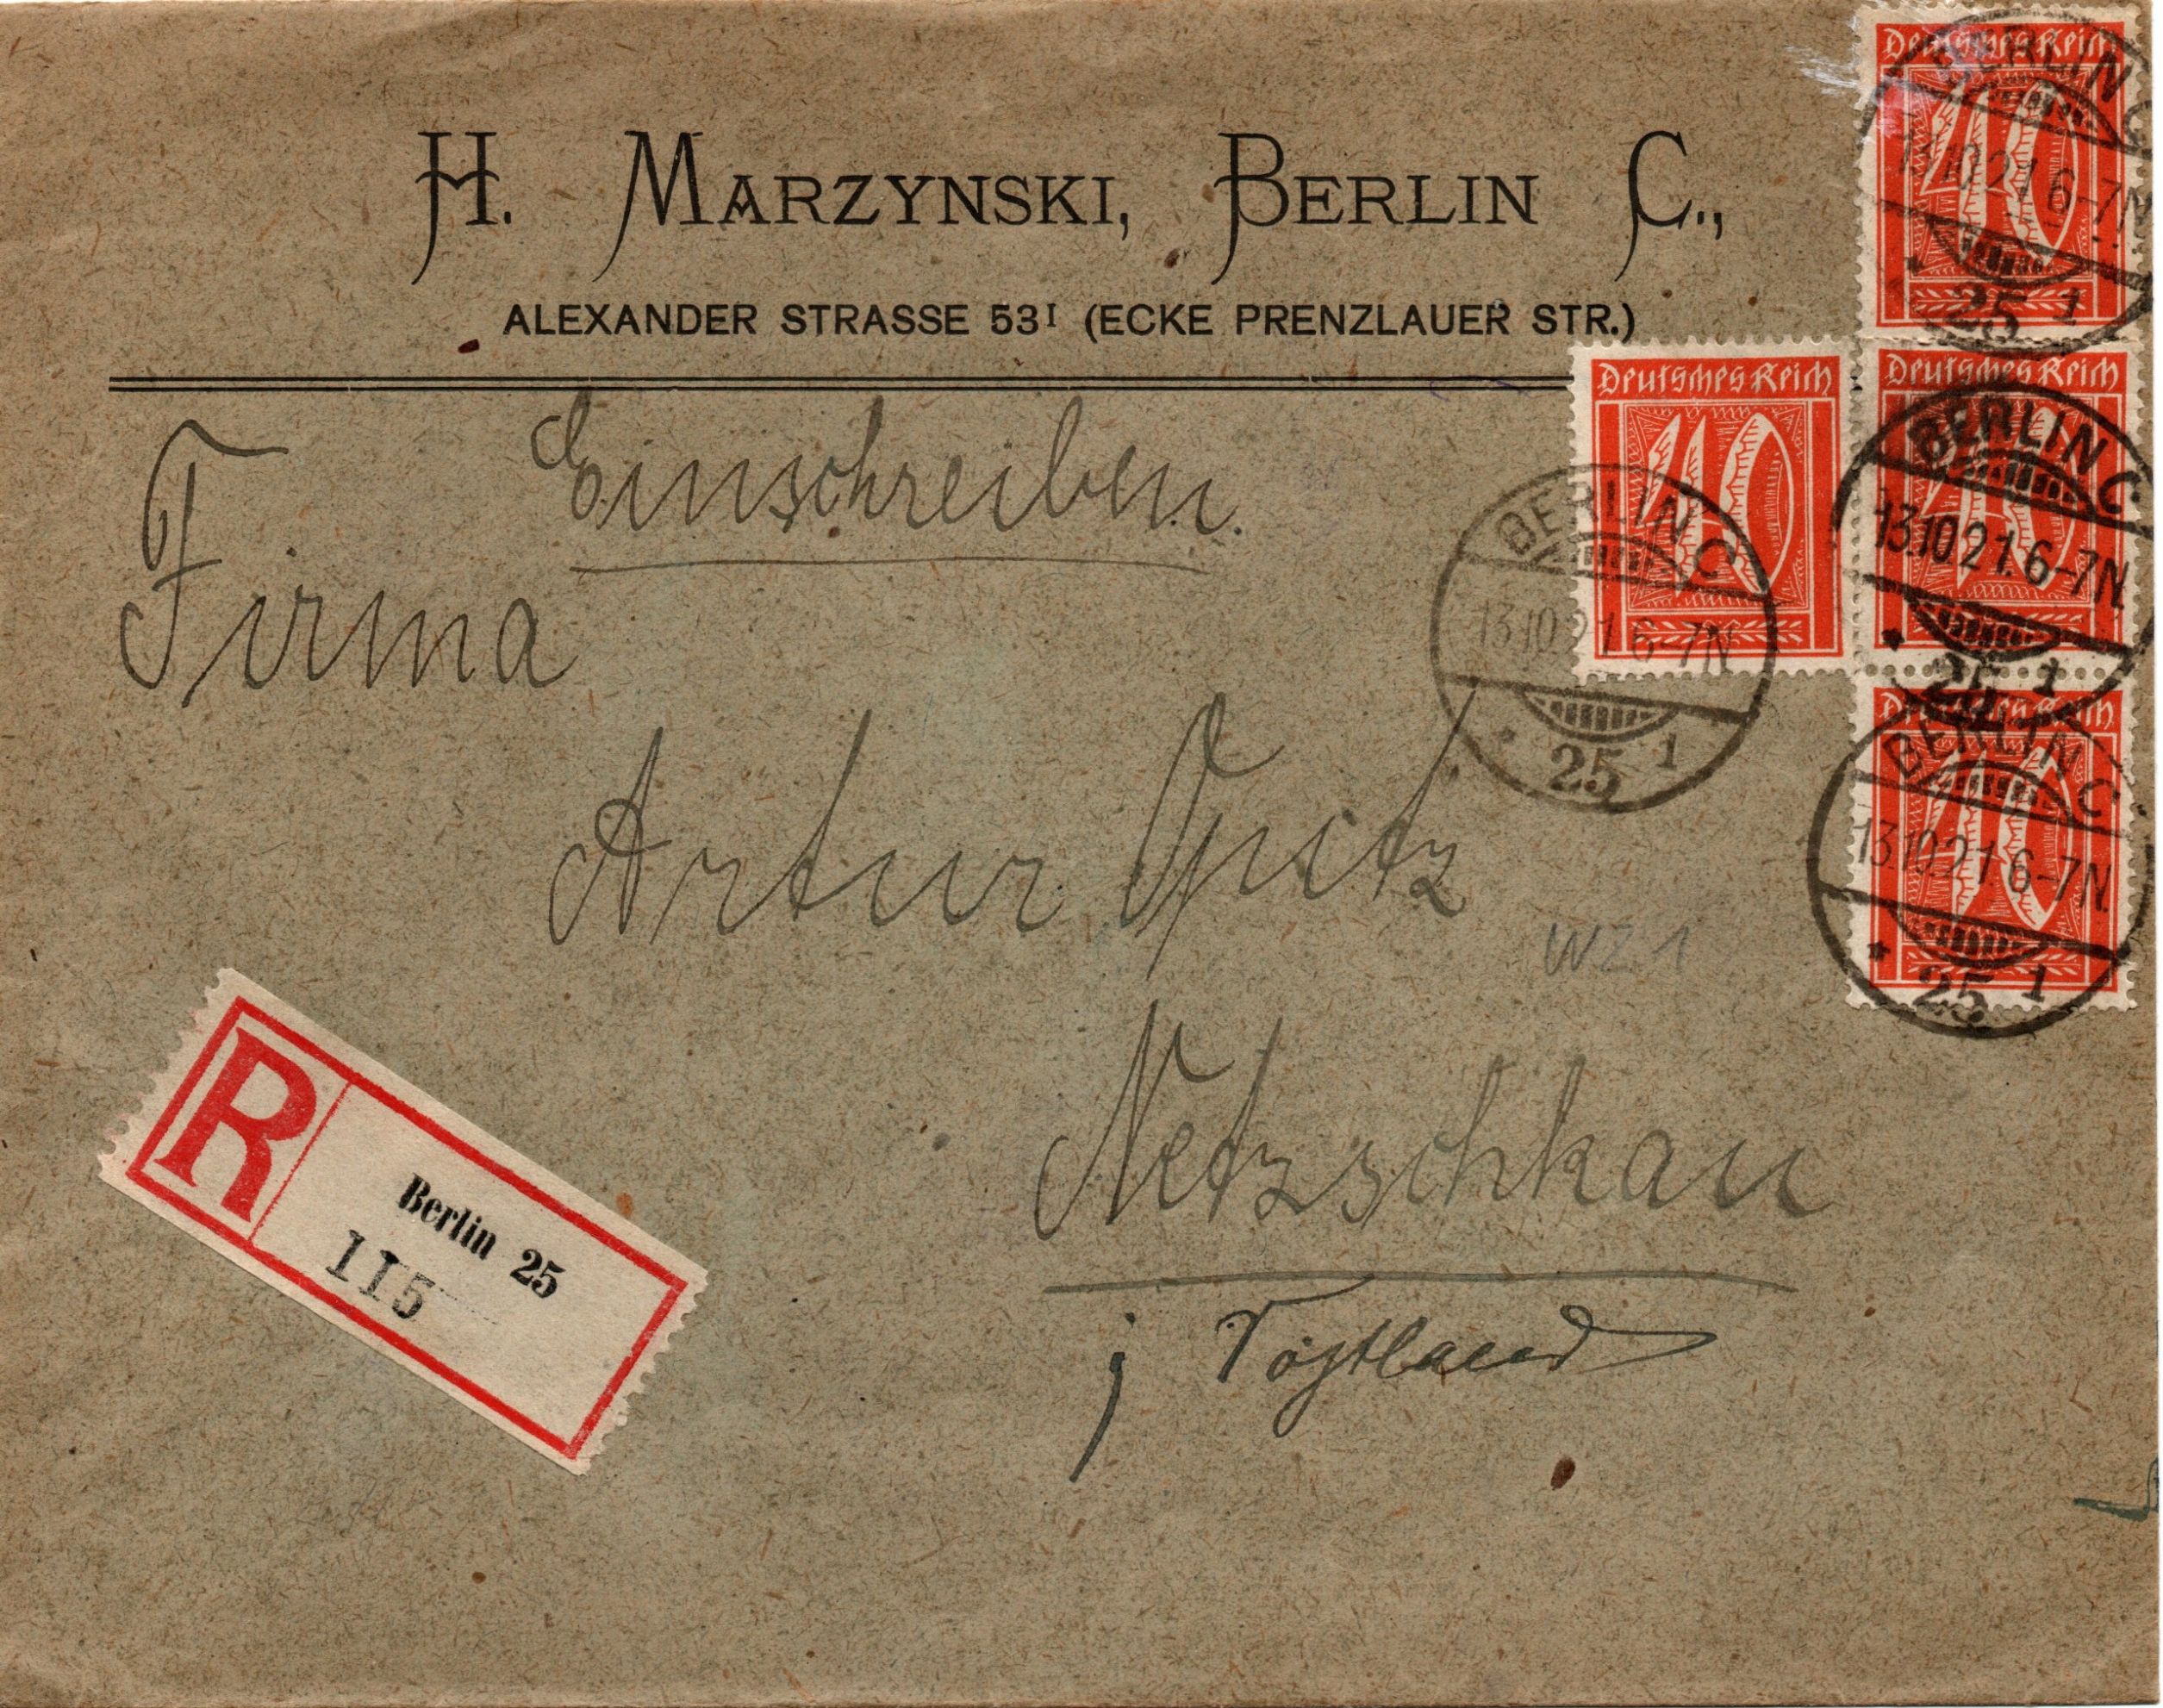 H. MARZYNSKI, BERLIN C.,
ALEXANDER STRASSE 53I (ECKE PRENZLAUER STR.)
Einschreiben.
Firma
Artur Opitz
Netzschkau
i Vogtland
WZ 1
R
Berlin 25
115
Deutsches Reich
40
BERLIN C.
13.10.21.6-7N.
* 25 1
Deutsches Reich
40
BERLIN C.
13.10.21.6-7N.
* 25 1
Deutsches Reich
40
BERLIN C.
13.10.21.6-7N.
* 25 1
Deutsches Reich
40
BERLIN C.
13.10.21.6-7N.
* 25 1